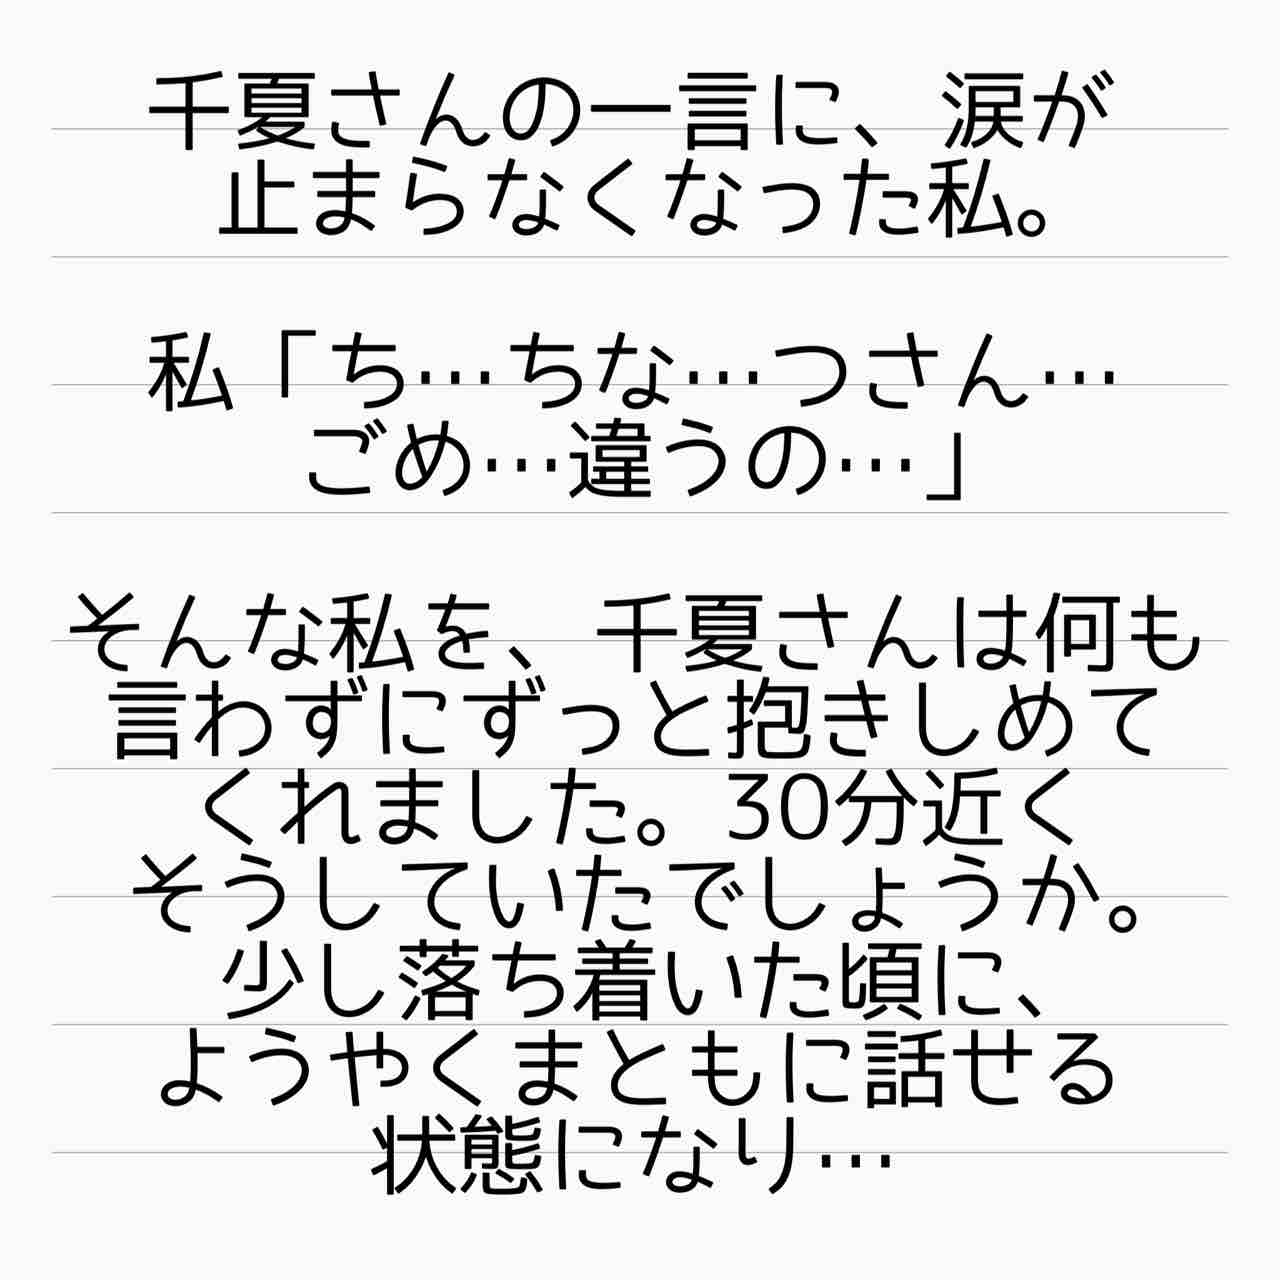 千夏さんの一言に、涙が
止まらなくなった私。
私「ち…ちな…つさん…
ごめ…違うの…」
そんな私を、千夏さんは何も
言わずにずっと抱きしめて
くれました。30分近く
そうしていたでしょうか。
少し落ち着いた頃に、
ようやくまともに話せる
状態になり…